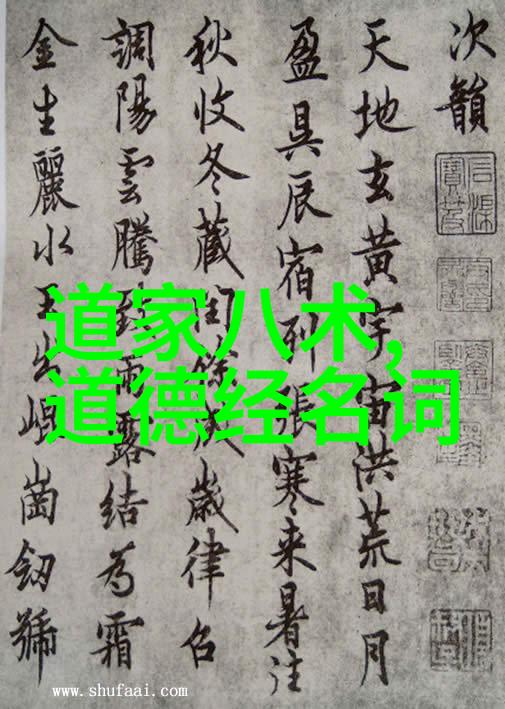 次韻
天地玄黄宇宙洪荒日月
盈昃辰宿列張寒来暑往
秋收冬蔵閏餘成歳律召
調陽雲騰致雨露結為霜
金生麗水玉出崐崗劒號
道家八术,
道德经名词
www.shufaai.com